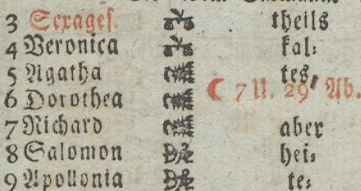 3 Sexages. theils
4 Veronica kal⸗
5 Agatha tes,
☾ 7 U. 29 Ab.
6 Dorothea
7 Richard aber
8 Salomon hei⸗
9 Apollonia te⸗